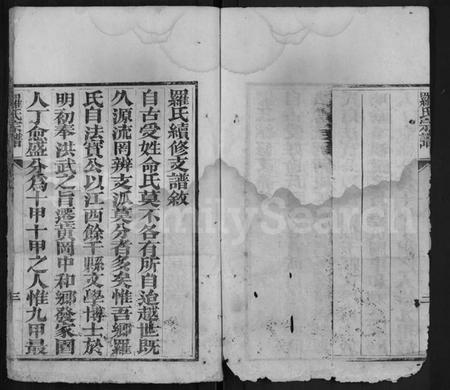 羅氏宗譜
二
羅氏續修支譜敘
自古受姓命氏莫不各有所自迨越世既
久源流罔辨支派莫分者多矣惟吾鄉羅
氏自法實公以江西餘干縣文學博士於
明初奉洪武之旨遷黃岡中和鄉發家國
人丁僉盛分為十甲十甲之人惟九甲最
羅氏宗譜
三
FamilySearch